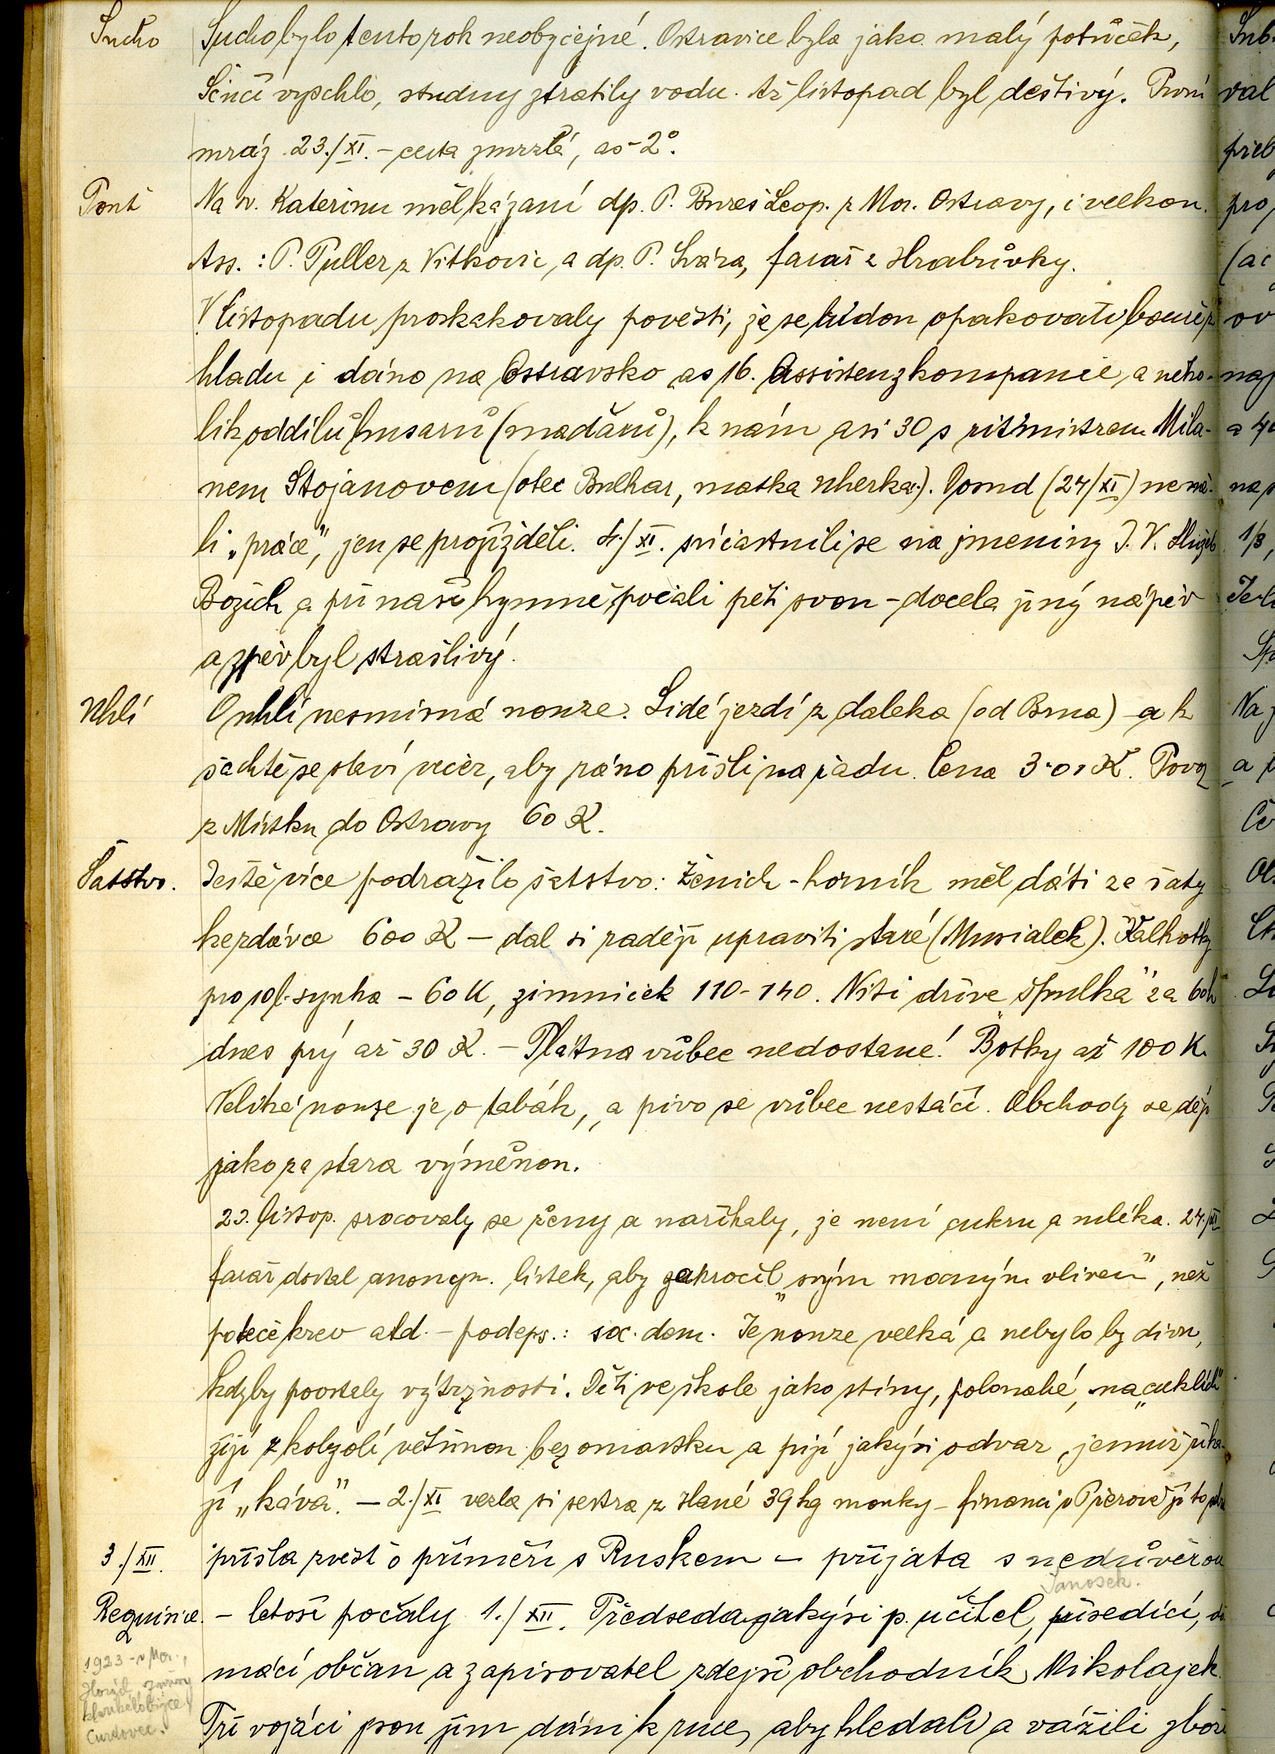 Sucho Sucho bylo tento rok neobyčejné. Ostravice byla jako malý potůček,
vyschlo, studny ztratily vodu. Až listopad byl deštivý. První
mráz 23./XI. – cesta zmrzlá, as -2°.
Pouť Na sv. Kateřinu měl kázaní dp. P. Bureš Leop. z Mor. Ostravy, i velkou.
Ass.: P. Puller z Vítkovic, a dp. P. Svára, farář z Hrabůvky.
V listopadu proskakovaly pověsti, že se budou opakovati bouře z
hladu i dáno na Ostravsko as 16. Assistenzkompanie, a něko-
lik oddílů husarů (maďarů), k nám asi 30 s ritmistrem Mila-
nem Stojanovem (otec Bulhar, matka Uherka.). Posud (24/XI) nemě-
li „práce", jen se projížděli. 4./XI. súčastnili se na jmeniny J. V. Služeb
Božích a při naší hymně počali pěti svou – docela jiný nápěv
a zpěv byl strašlivý.
Uhlí O uhlí nesmírná nouze. Lidé jezdí z daleka (od Brna) – a k
šachtě se staví večer, aby ráno přišli na řadu. Cena 3·01 K. Povoz
z Místku do Ostravy 60 K.
Šatstvo. Ještě více podražilo šatstvo: Ženich - horník měl dáti za šaty
ke zdávce 600 K – dal si raději upraviti staré (Musialek). Kalhotky
pro synka – 60 K, zimníček 110-140. Niti dříve „špulka" za 60 h
dnes prý až 30 K. – Plátna vůbec nedostane! Botky až 100 K.
Veliká nouze je o tabák, a pivo se vůbec nestáčí. Obchody se dějí
jako za stara výměnou.
23. listop. srocovaly se ženy a naříkaly, že není cukru a mléka. 24./XI
farář dostal anonym. lístek, aby zakročil „svým mocným vlivem", než
poteče krev atd. – podeps.: soc. dem. Je nouze velká a nebylo by divu,
kdyby povstaly výtržnosti. Děti ve škole jako stíny, polonahé, na
žijí z kolzolí většinou bez omastku a pijí jakýsi odvar, jemuž říka-
jí „káva". – 2./XI vezla si sestra z Hané 39 kg mouky – financi v Přerově jí to
3./XII. přišla zvěst o příměří s Ruskem – přijata s nedůvěrou
Janosek.
Requisice. – letoší počaly 1./XII. Předseda jakýsi p. učitel, přísedící,
mácí občan a zapisovatel zdejší obchodník, Mikolajek.
1923 - v Mor.,
Tři vojáci jsou jim dáni k ruce, aby hledali a vážili zboží